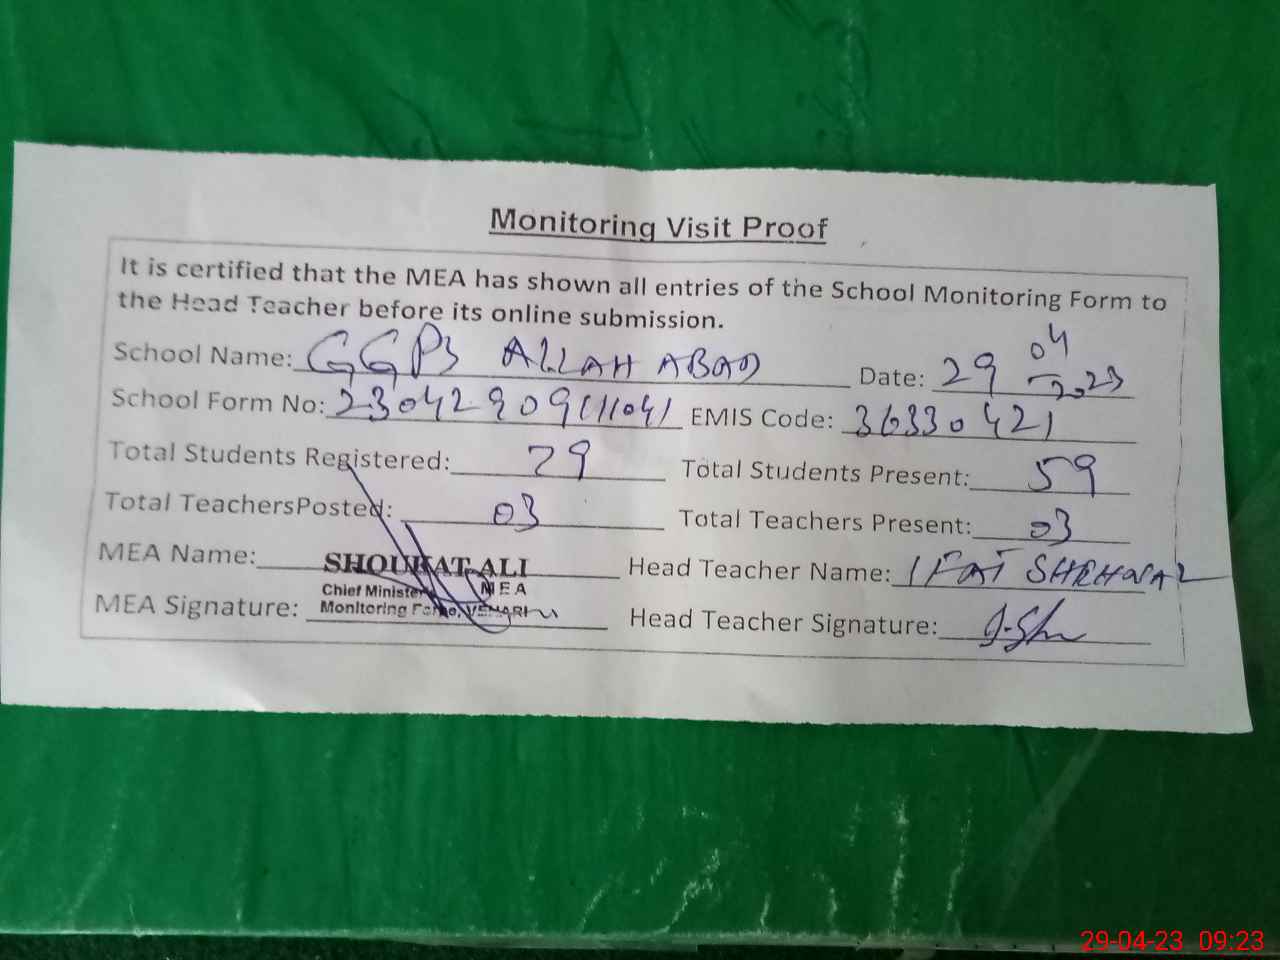 Monitoring Visit Proof
It is certified that the MEA has shown all entries of the School Monitoring Form to
the Head Teacher before its online submission.
School Name: GGPS ALLAH ABAD Date: 29 04 2023
School Form No: EMIS Code: 36330421
Total Students Registered: 79 Total Students Present: 59
Total TeachersPosted: 03 Total Teachers Present: 03
MEA Name: SHOUKAT ALI Head Teacher Name:
Chief Minister MEA
MEA Signature: Monitoring Force, VEHARI Head Teacher Signature:
29-04-23 09:23